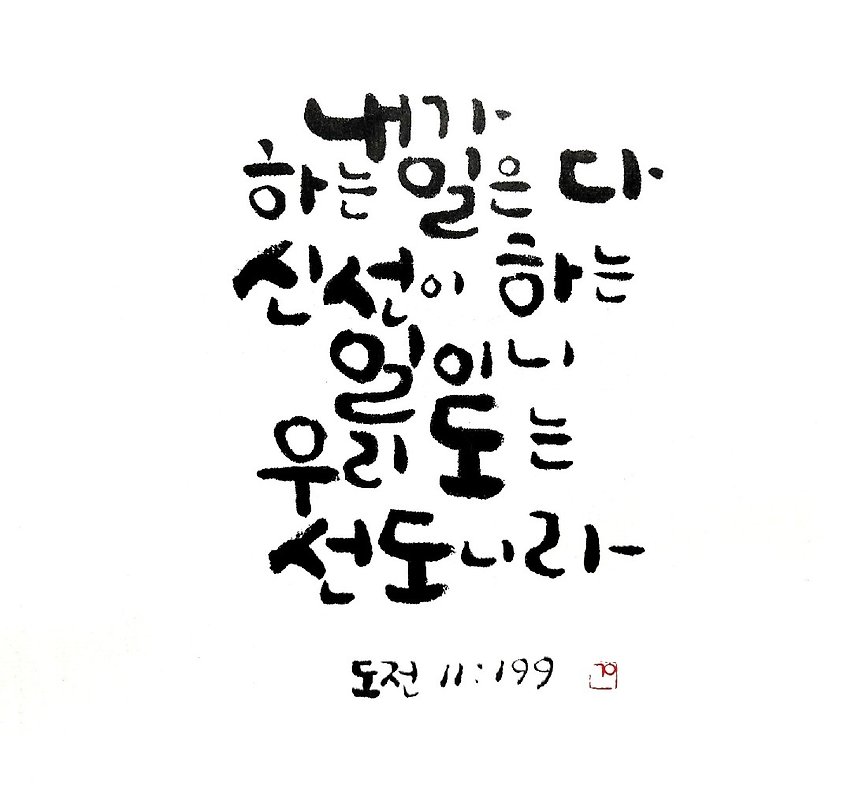 내가
하는 일은 다
신선이 하는
일이니
우리 도는
선도니라
도전 11:199